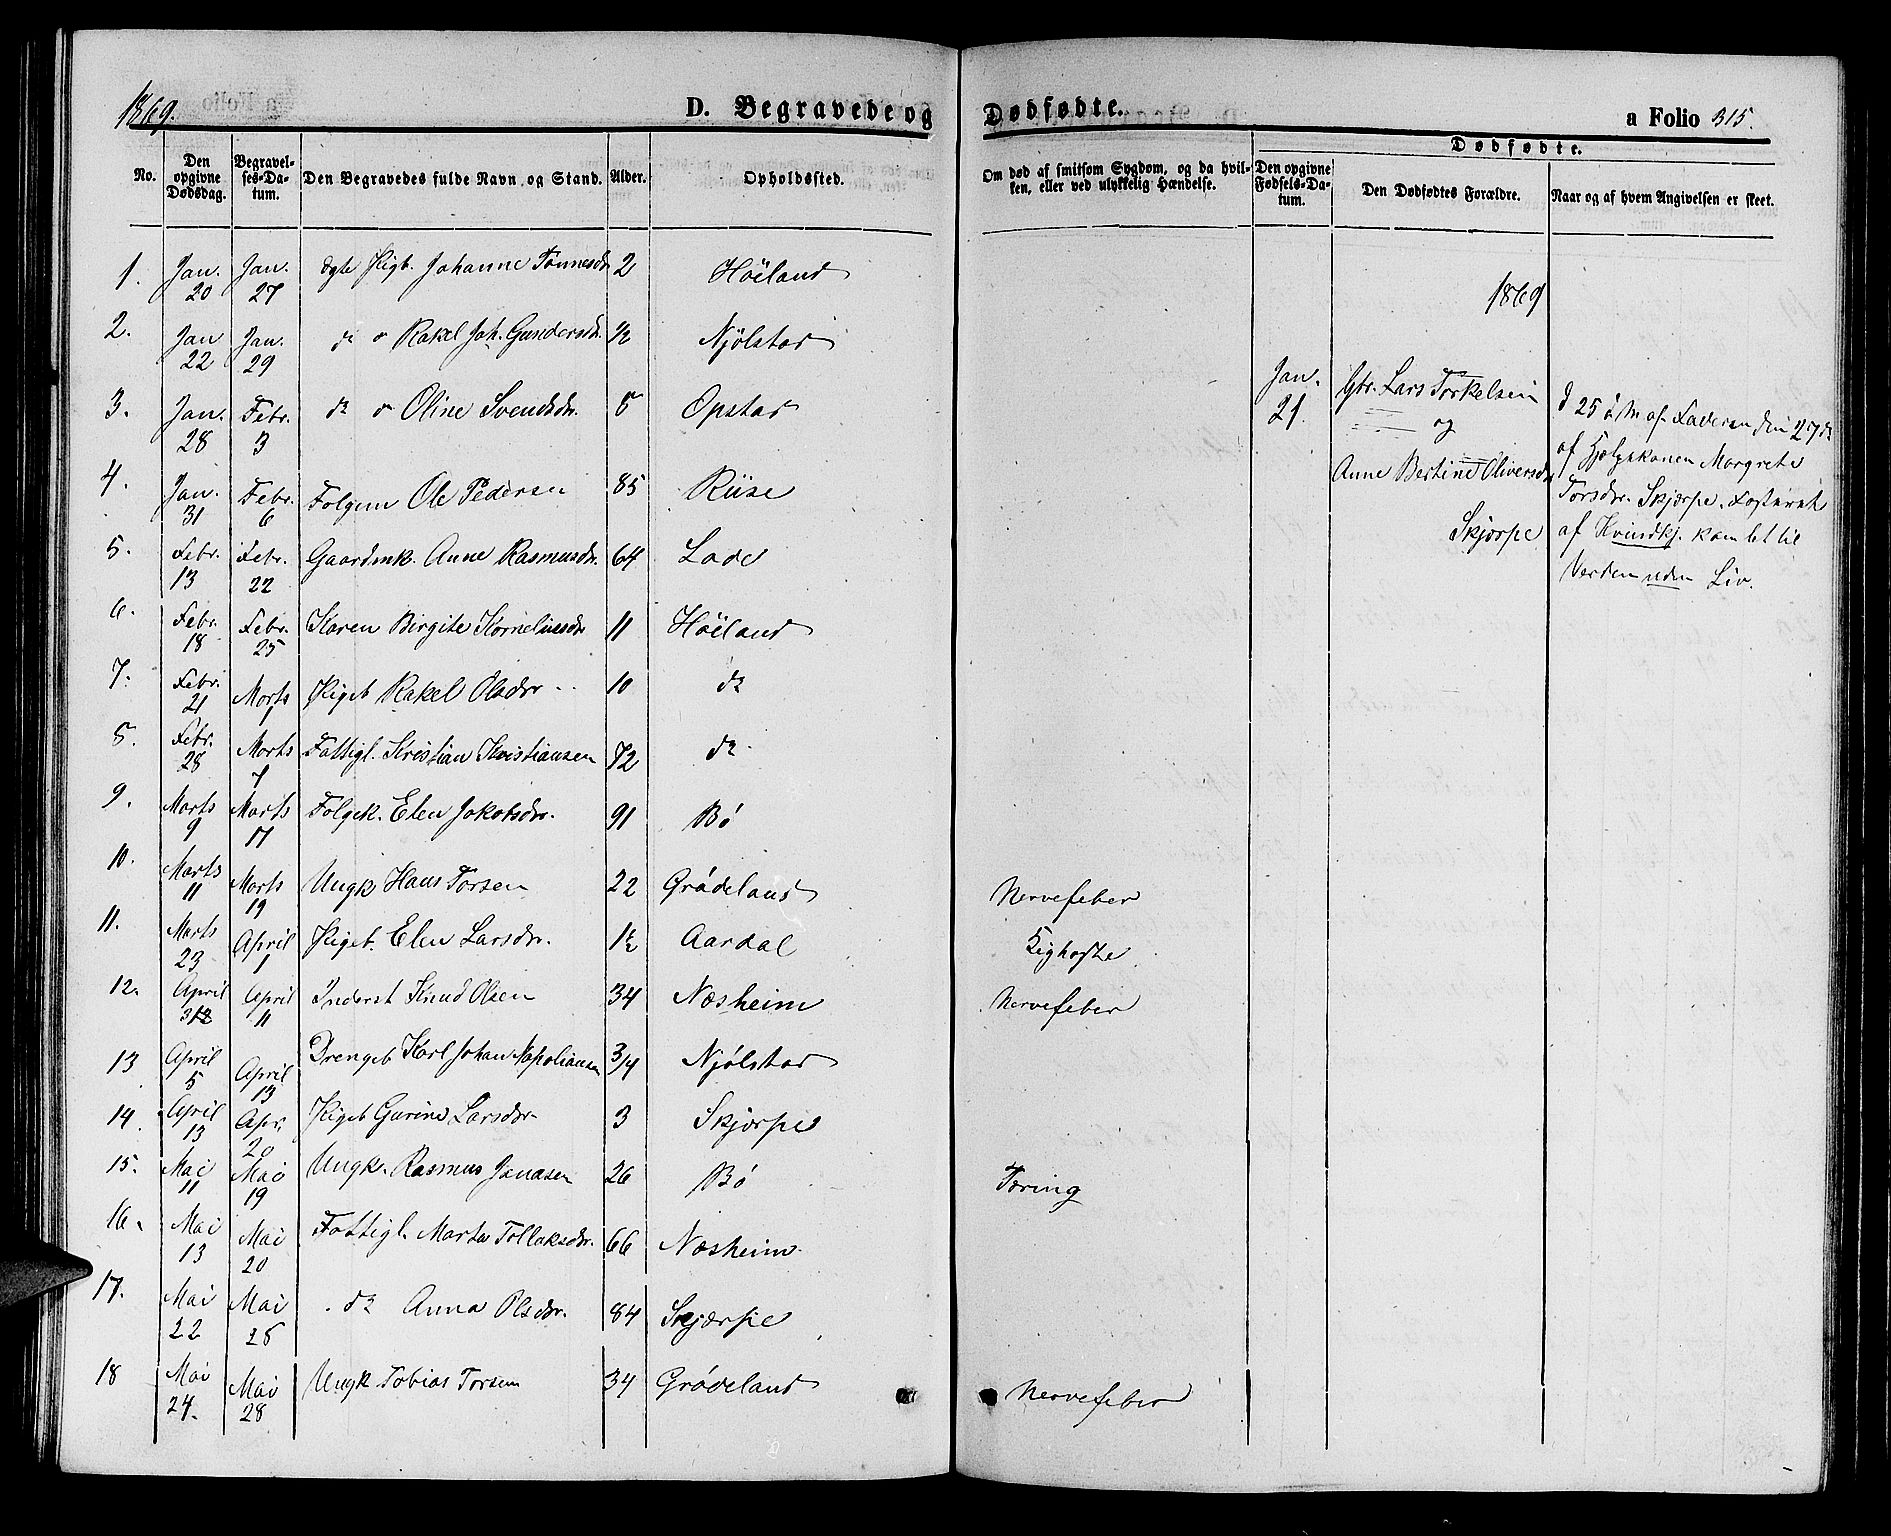 1869.
D. Begravede og Dødfødte.
a Folio 315.
No.
Den opgivne Dødsdag.
Begravelses-Datum.
Den Begravedes fulde Navn og Stand.
Alder.
Opholdssted.
Om død af smitsom Sygdom, og da hvilken, eller ved ulykkelig Hændelse.
Dødfødte.
Den opgivne Fødsels-Datum.
Den Dødfødtes Forældre.
Naar og af hvem Angivelsen er skeet.
1. Jan. 20 Jan. 27 ægte Pigb. Johanne Tønnesdr 2 Höiland
2. Jan 22 Jan. 29 do " Rakel Joh. Gundersdr. ½ Njølstad
3. Jan. 28 Febr. 3 do " Oline Svendsdr. 8 Opstad
4. Jan. 31 Febr. 6 Folgem Ole Pedersen 85 Riise
5. Febr. 13 Febr. 22 Gaardmk. Anne Rasmusdr. 64 Lode
6. Febr. 18 Febr. 25 Karen Birgite Kornelius dr 11 Höiland
7. Febr. 21 Marts 1 Pigeb Rakel Olsdr 10 do
8. Febr. 28 Marts 7 Fattigl. Kristian Kristiansen 72 do
9. Marts 9 Marts 17 Folgek. Elen Jakobsdr. 91 Bö
10. Marts 11 Marts 19 Ungk Hans Torsen 22 Grödeland Nervefeber
11. Marts 23 April 1 Pigeb. Elen Larsdr. 1½ Aardal Kighoste
12. April April 11 Inderst Knud Olsen 34 Næsheim Nervefeber
13 April 5 April 13 Drengeb Karl Johan Napoliansen 3/4 Njølstad
14. April 13 Apr. 20 Pigeb Gurine Larsdr 3 Skjærpe
15. Mai 11 Mai 19 Ungk. Rasmus Jonasen 26 Bö Tæring
16. Mai 13 Mai 20 Fattigl. Marta Tollaksdr. 66 Næsheim
17. Mai 22 Mai 28 do Anna Olsdr. 84 Skjærpe
18 Mai 24. Mai 28 Ungk Tobias Torsen 34 Grödeland Nervefeber
1869
Jan. 21.
Gbr. Lars Torkelsen
og
Anne Bertine Oliversdr
Skjærpe
d 25 d M af Faderen den 27 d
af Hjelpekonen Margrete
Torsdr. Skjærpe. Fosteret
af Kvindkj. kom let til
Verden uden Liv.